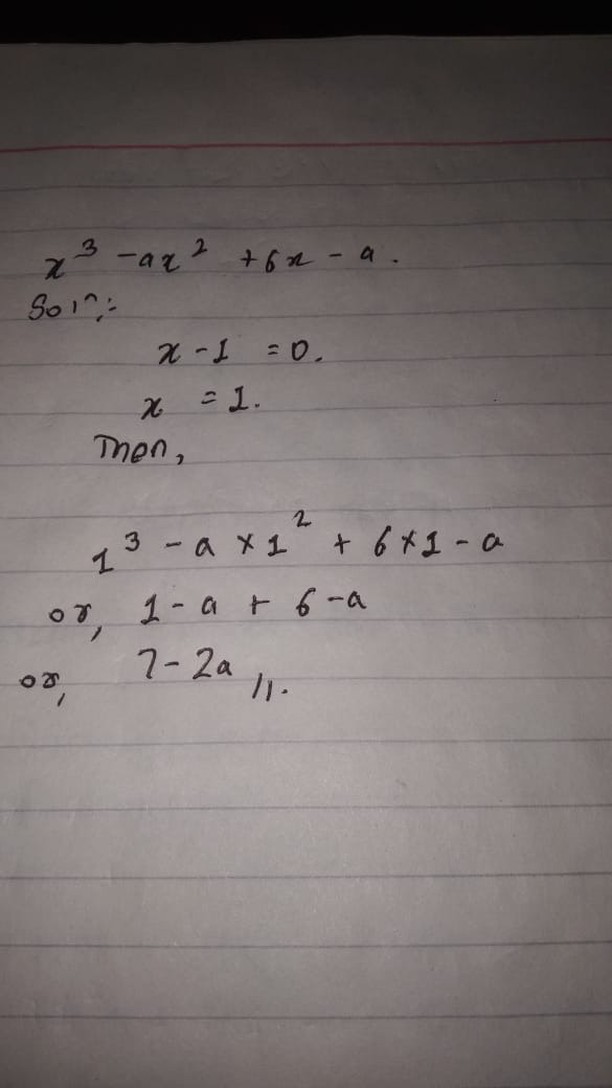 x³ - ax² + 6x - a.
Solⁿ:-
x - 1 = 0.
x = 1.
Then,
1³ - a × 1² + 6 × 1 - a
or, 1 - a + 6 - a
or, 7 - 2a //.